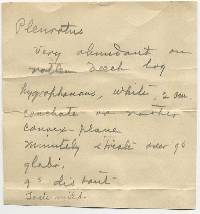 Pleurotus
Very abundant on
rotten beech log
hygrophanous, white, 2 cm.
conchate or rather
convex-plane
Minutely striate over gs
glabr.
gs distant
Taste mild.